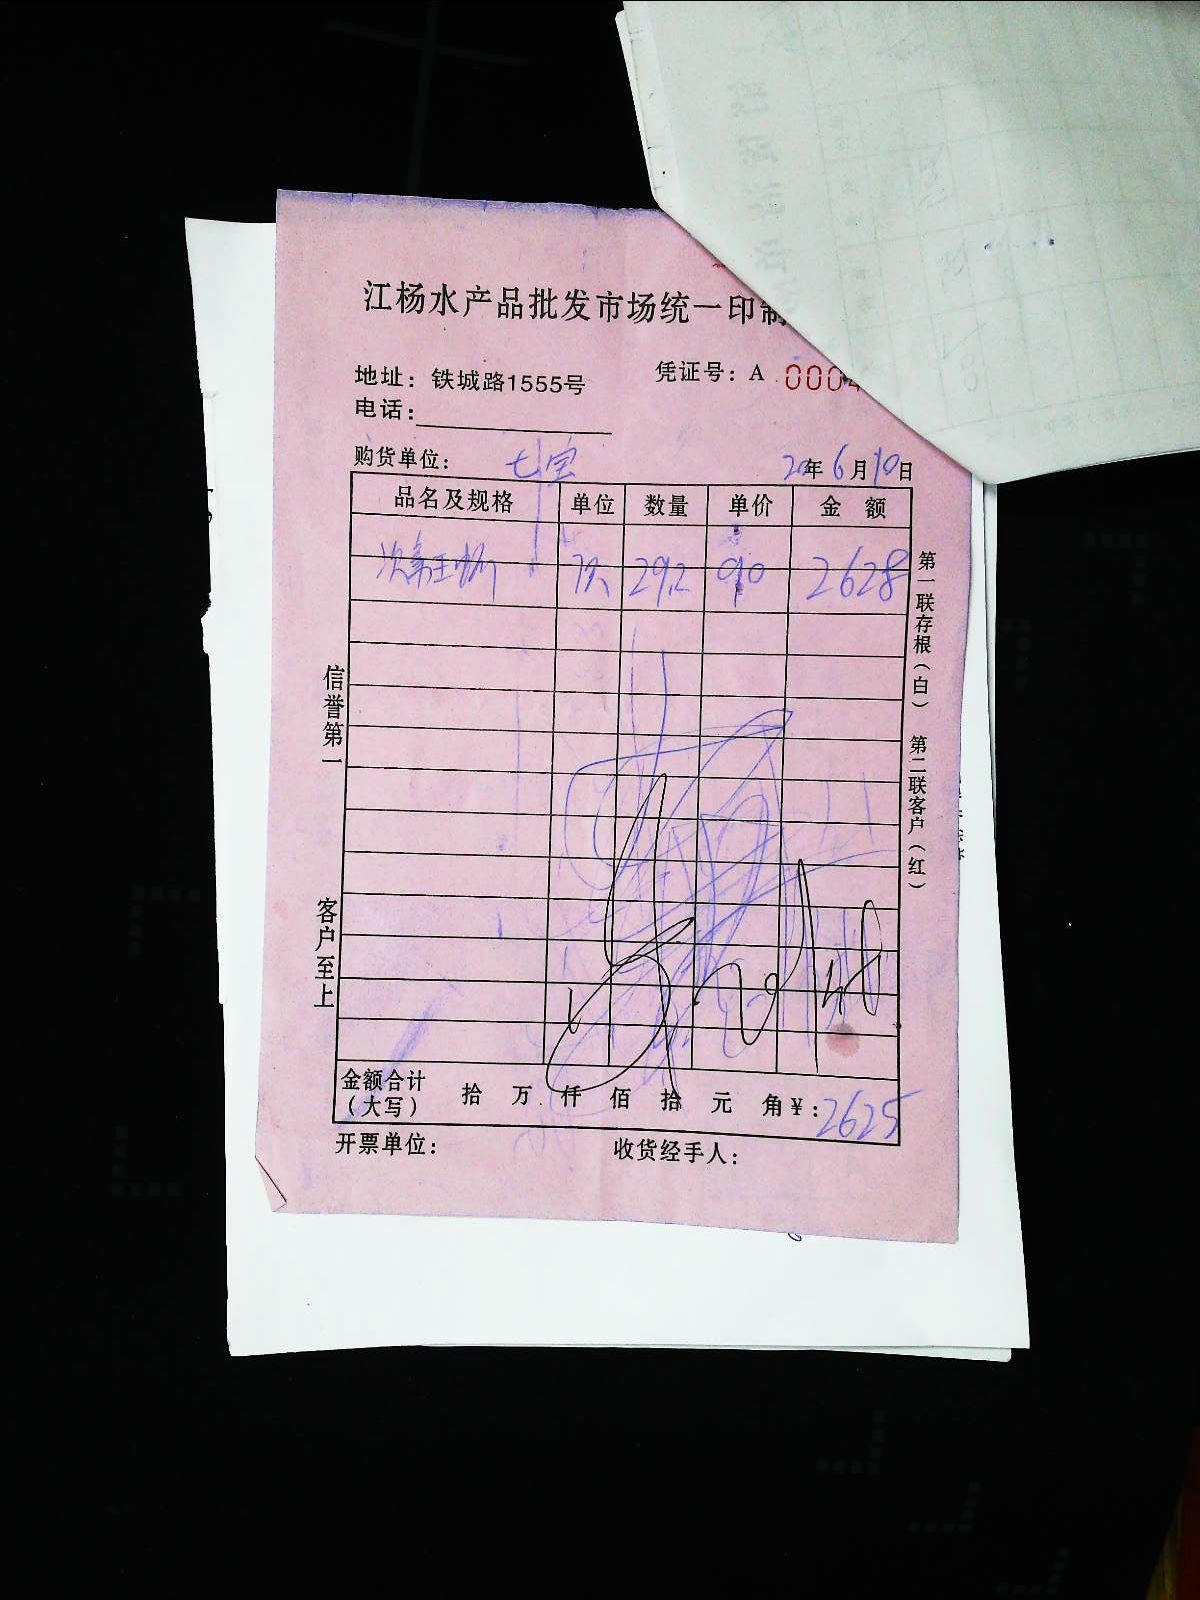 江杨水产品批发市场统一印制
地址：铁城路1555号
凭证号：A 0004
电话：
购货单位： 七宝 20年6月10日
品名及规格 单位 数量 单价 金 额
29.2 90 2628
第一联存根（白） 第二联客户（红）
信誉第一
客户至上
金额合计（大写） 拾 万 仟 佰 拾 元 角 ￥：2625
开票单位： 收货经手人：